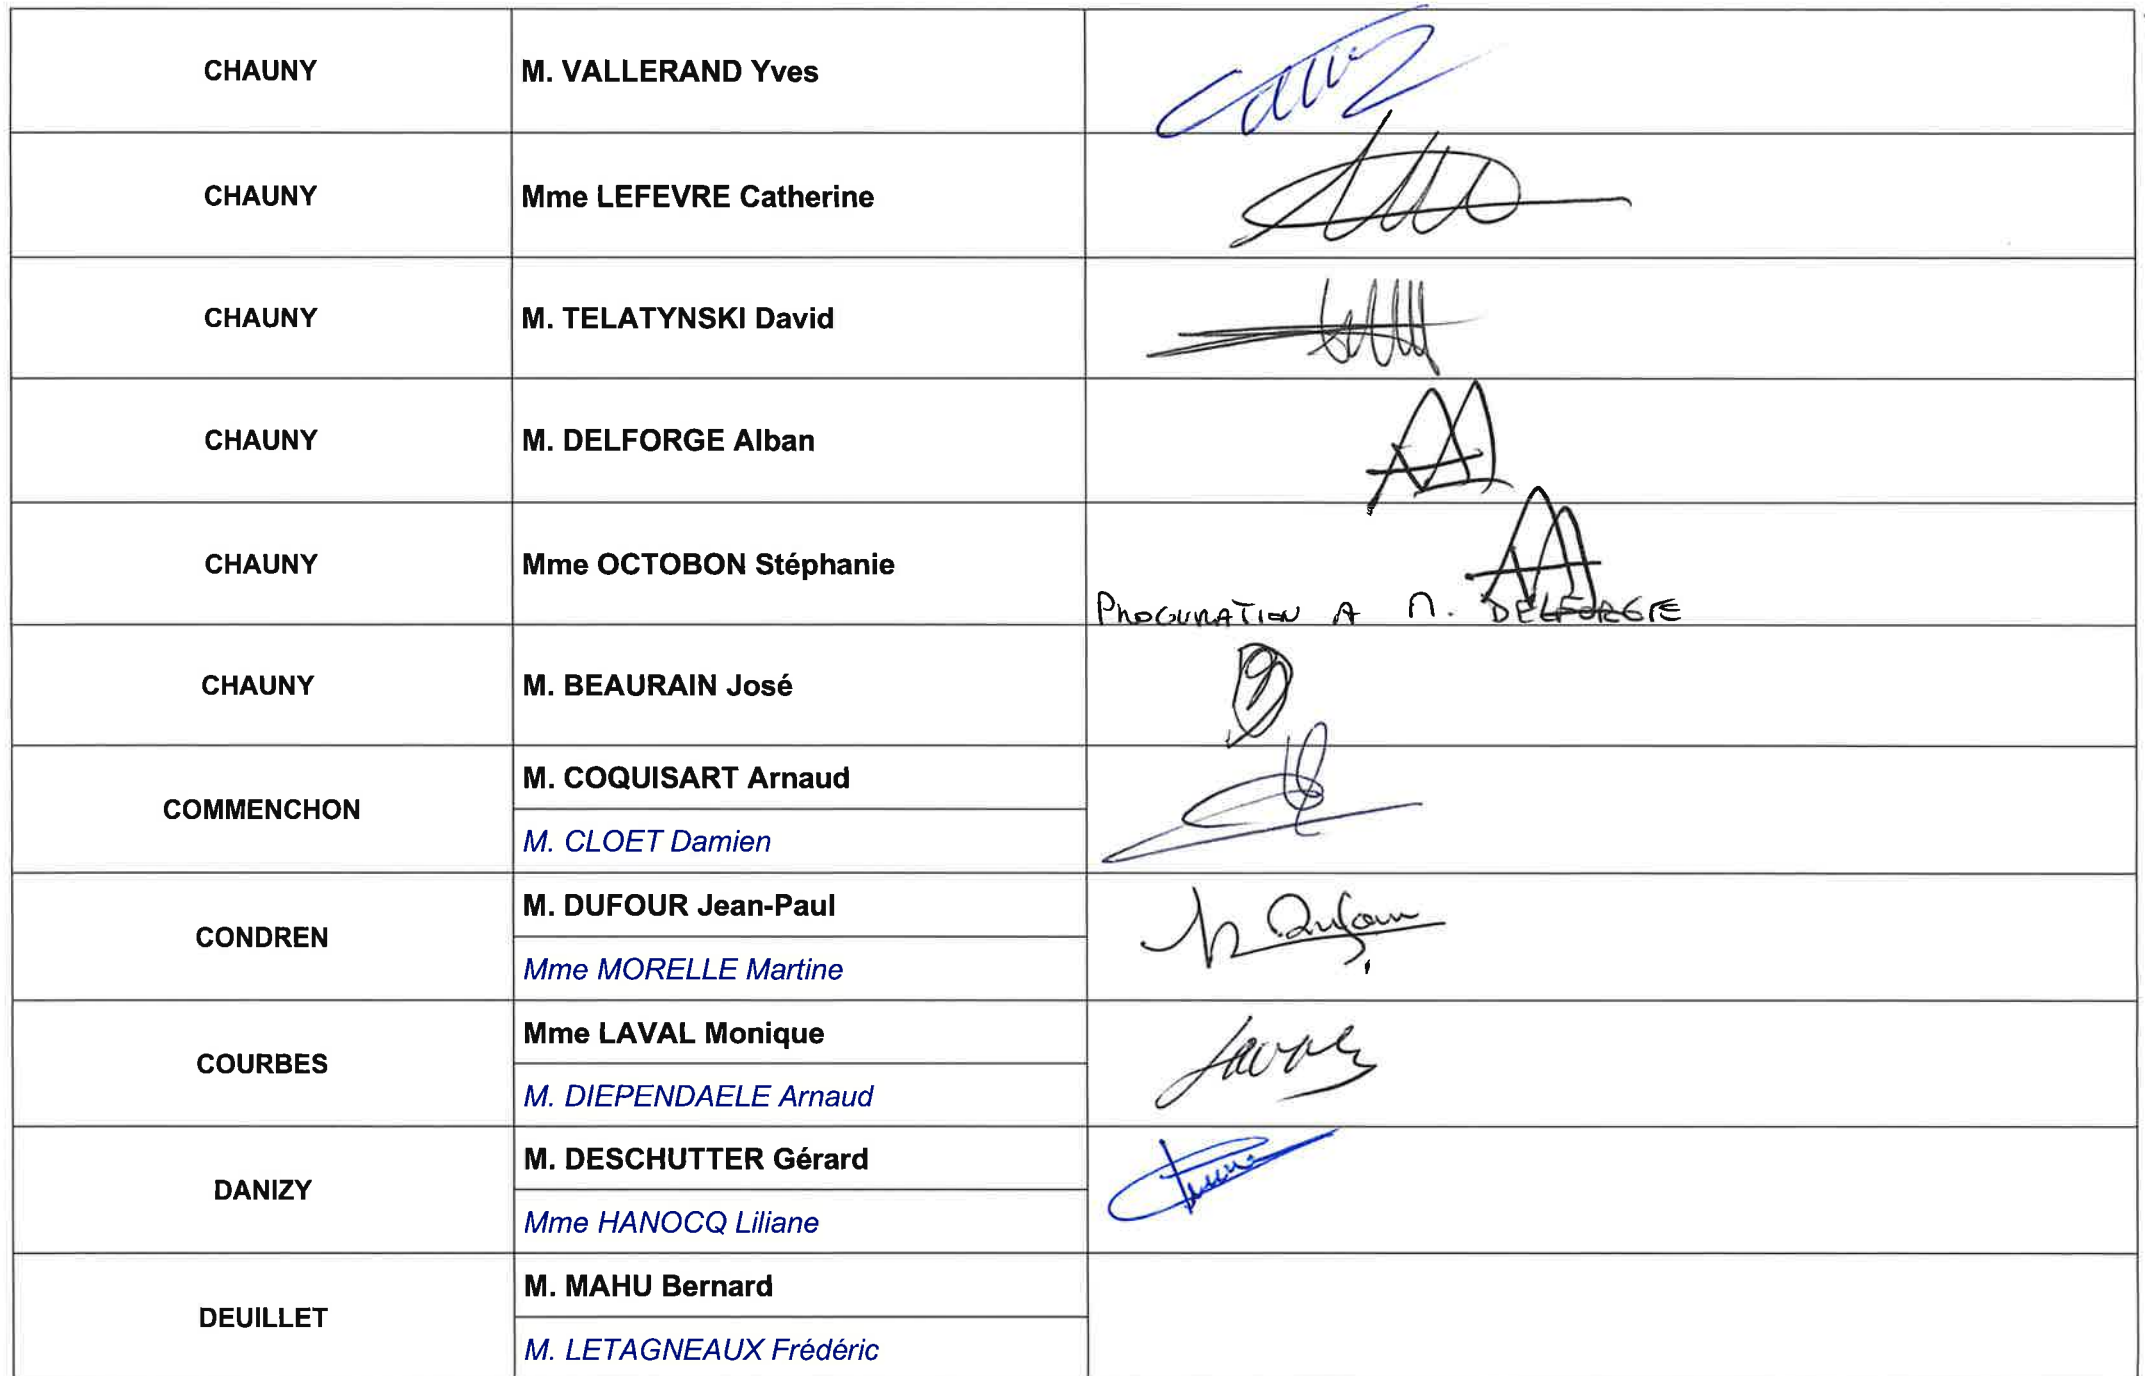 CHAUNY M. VALLERAND Yves
CHAUNY Mme LEFEVRE Catherine
CHAUNY M. TELATYNSKI David
CHAUNY M. DELFORGE Alban
CHAUNY Mme OCTOBON Stéphanie
PROCURATION A M. DELFORGE
CHAUNY M. BEAURAIN José
COMMENCHON
M. COQUISART Arnaud
M. CLOET Damien
CONDREN
M. DUFOUR Jean-Paul
Mme MORELLE Martine
Dufour
COURBES
Mme LAVAL Monique
M. DIEPENDAELE Arnaud
DANIZY
M. DESCHUTTER Gérard
Mme HANOCQ Liliane
DEUILLET
M. MAHU Bernard
M. LETAGNEAUX Frédéric